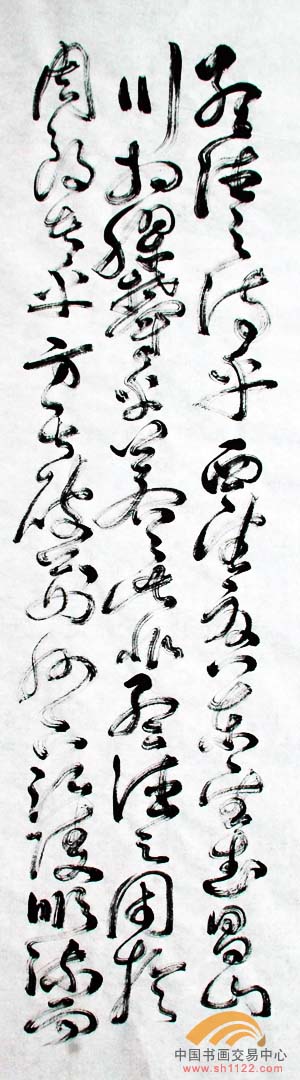 孟德之詩乎西望夏口東望武昌山
川相繆鬱乎蒼蒼此非孟德之困於
周郎者乎方其破荊州下江陵順流而
中国书画交易中心
www.sh1122.com